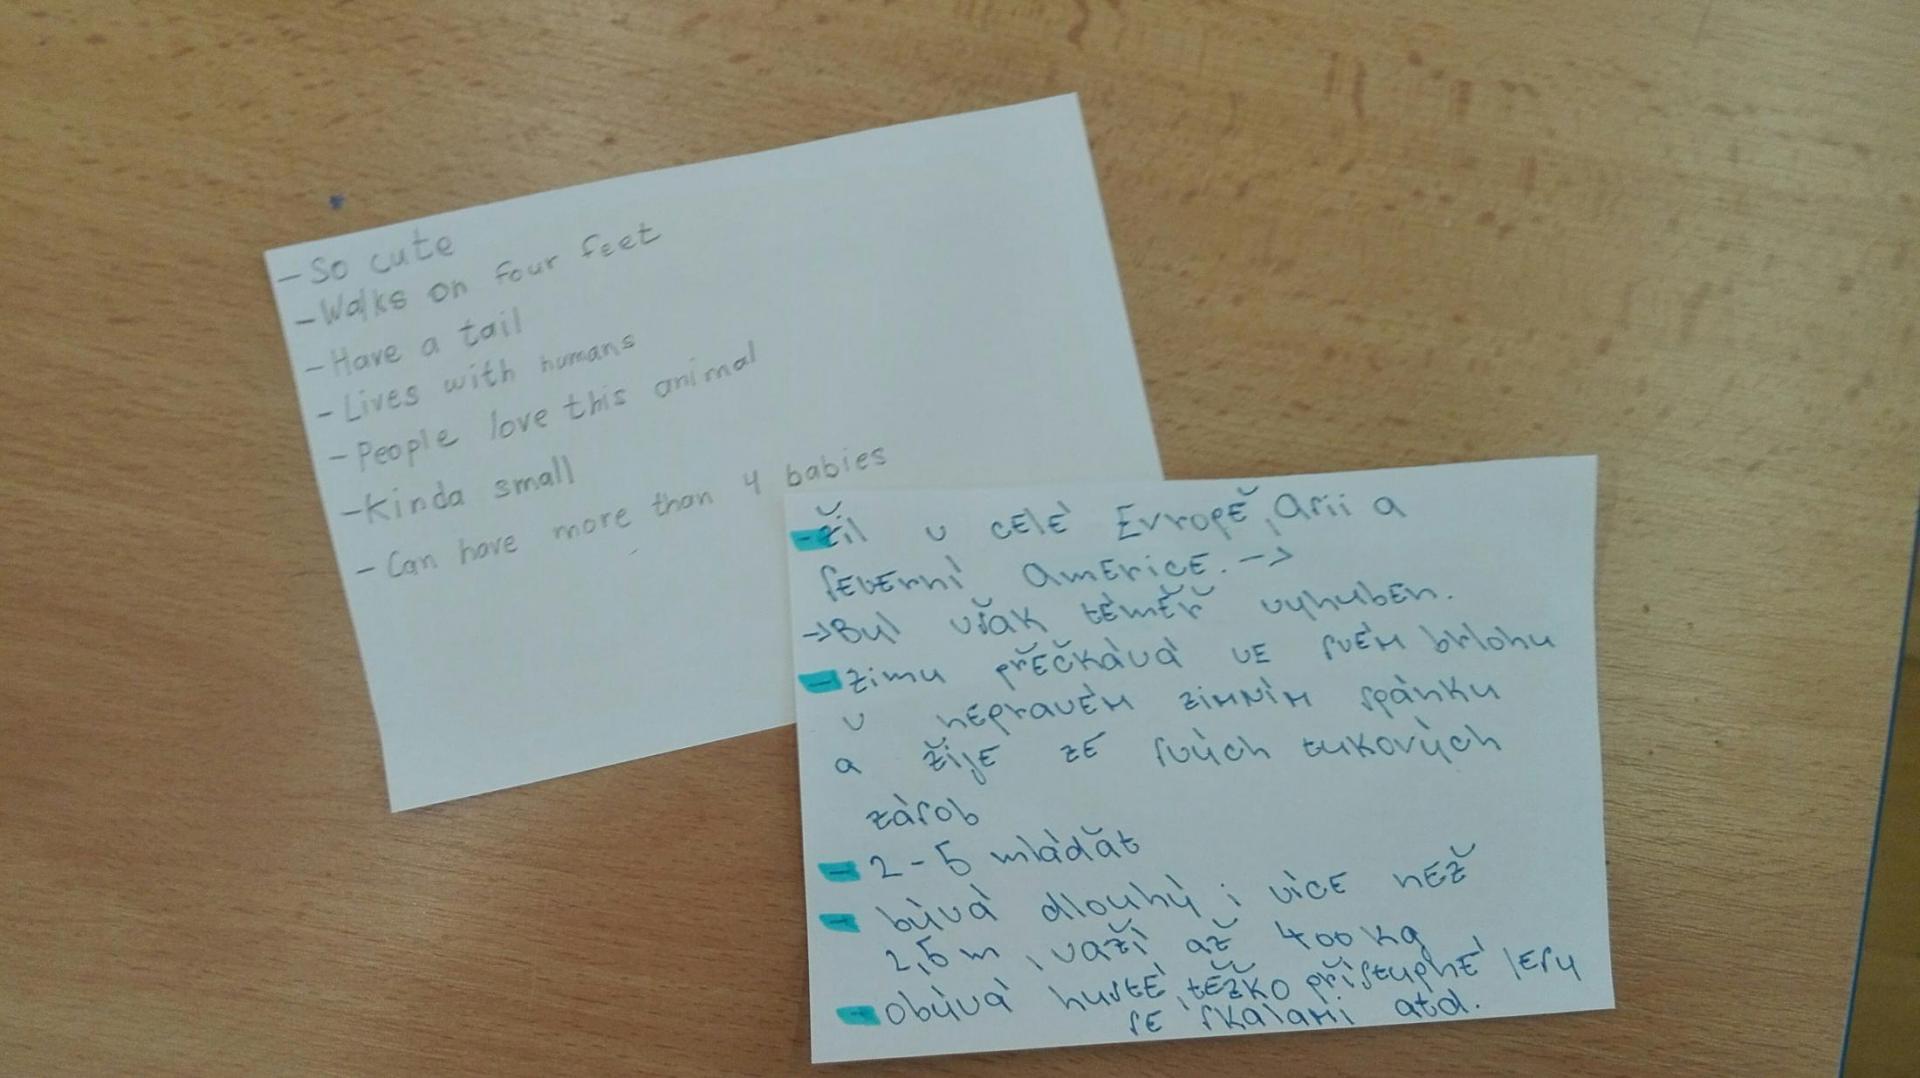 - So cute
- Walks on four feet
- Have a tail
- Lives with humans
- People love this animal
- Kinda small
- Can have more than 4 babies
- žil v celé Evropě, Asii a
severní Americe. ->
-> Byl však téměř vyhuben.
- zimu přečkává ve svém brlohu
v nepravém zimním spánku
a žije ze svých tukových
zásob
- 2 - 5 mláďat
- bývá dlouhý i více než
2,5 m, váží až 400 kg
- obývá husté, těžko přístupné lesy
se skalami atd.